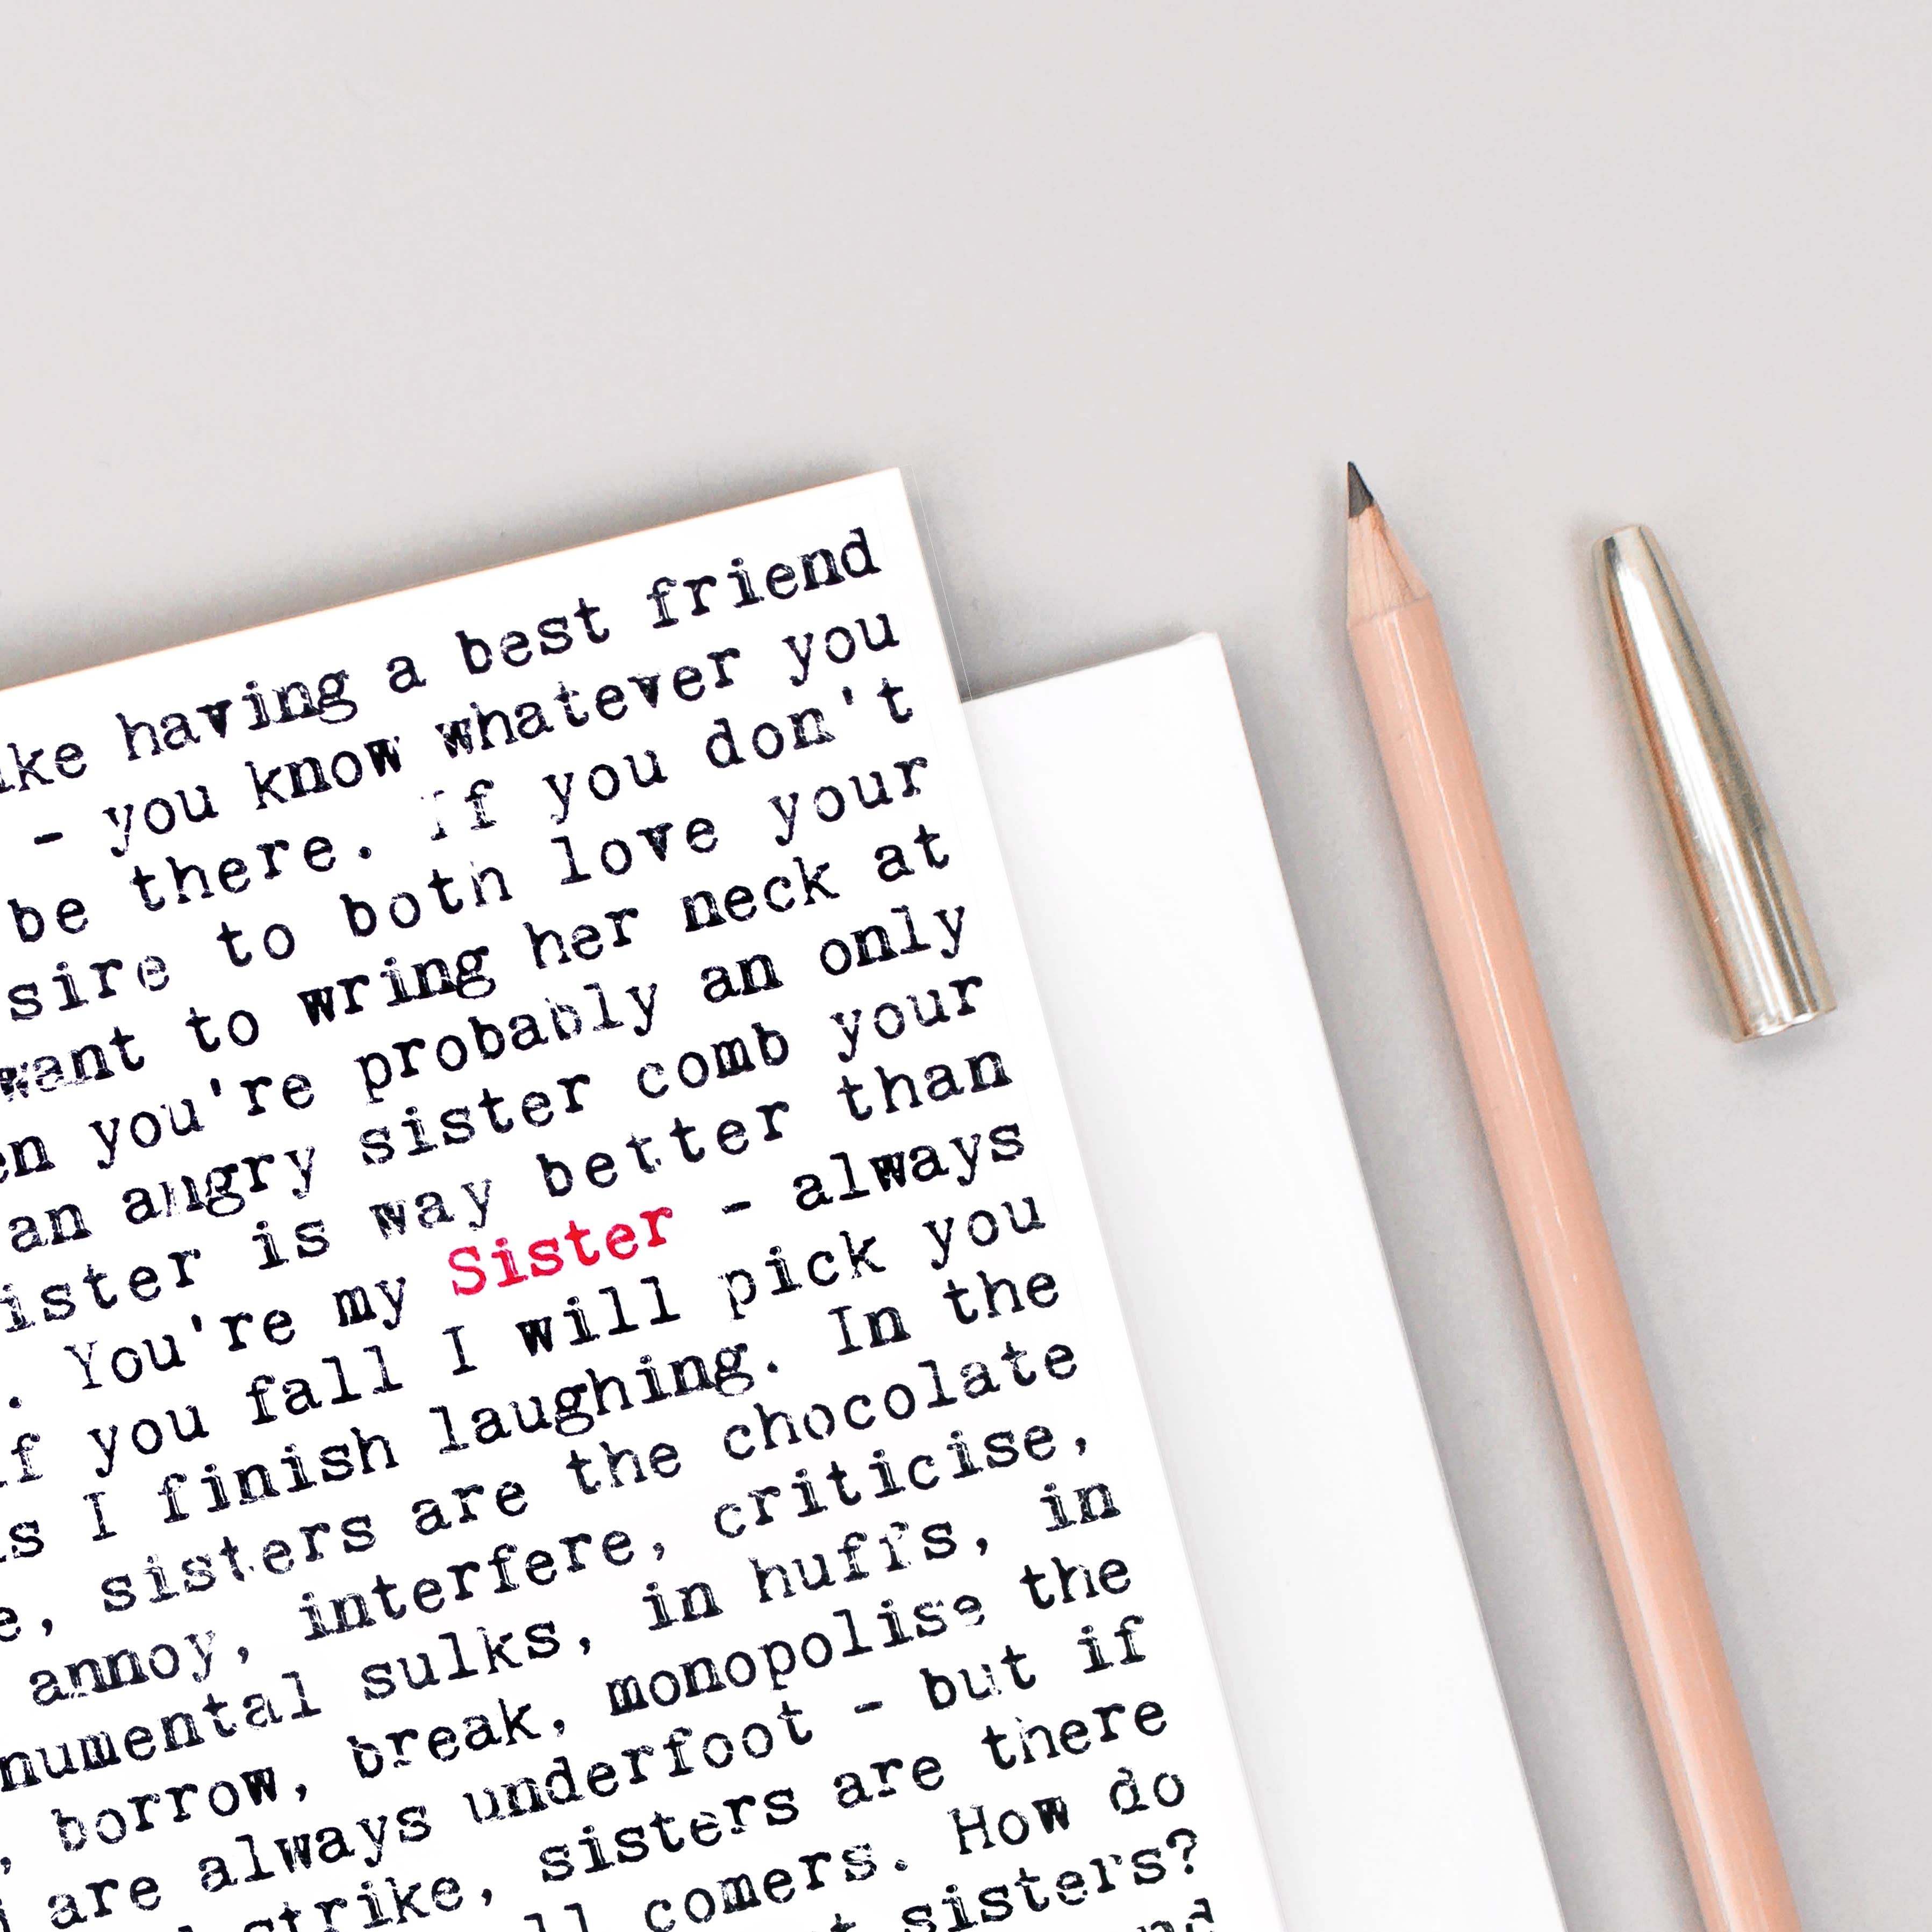 having a best friend
- you know whatever you
be there. If you don't
to both love your
want to wring her neck at
you're probably an only
an angry sister comb your
is way better than
. You're my Sister - always
you fall I will pick you
I finish laughing. In the
, sisters are the chocolate
annoy, interfere, criticise,
sulks, in huffs, in
, borrow, break, monopolise the
are always underfoot - but if
strike, sisters are there
comers. How do
sisters?